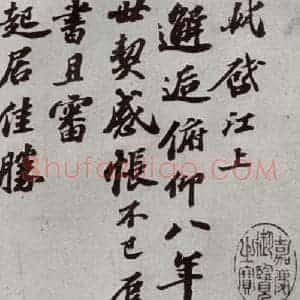 軾啓江上
邂逅俯仰八年
世契感悵不已辱
書且審
起居佳勝
嘉慶御覽之寶